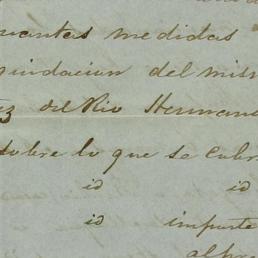 cuantas medidas
quidacion del mism
ez del Rio Herman
sobre lo que se cubr
id id
id importe